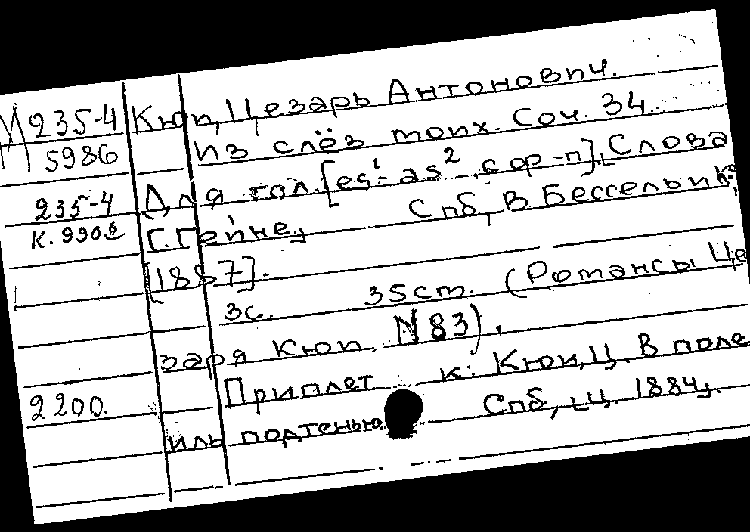 М 235-4
5986
235-4
К. 990
2200.
Кюи, Цезарь Антонович.
Из слёз моих. Соч. 34.
Для гол. [es¹-as² с ор-п], Слова
Г. Гейне, Спб, В. Бессель и К°
[1887].
3с. 35cm. (Романсы Це
заря Кюи. N 83).
Приплет к: Кюи, Ц. В поле
иль под тенью Спб, ц. 1884,